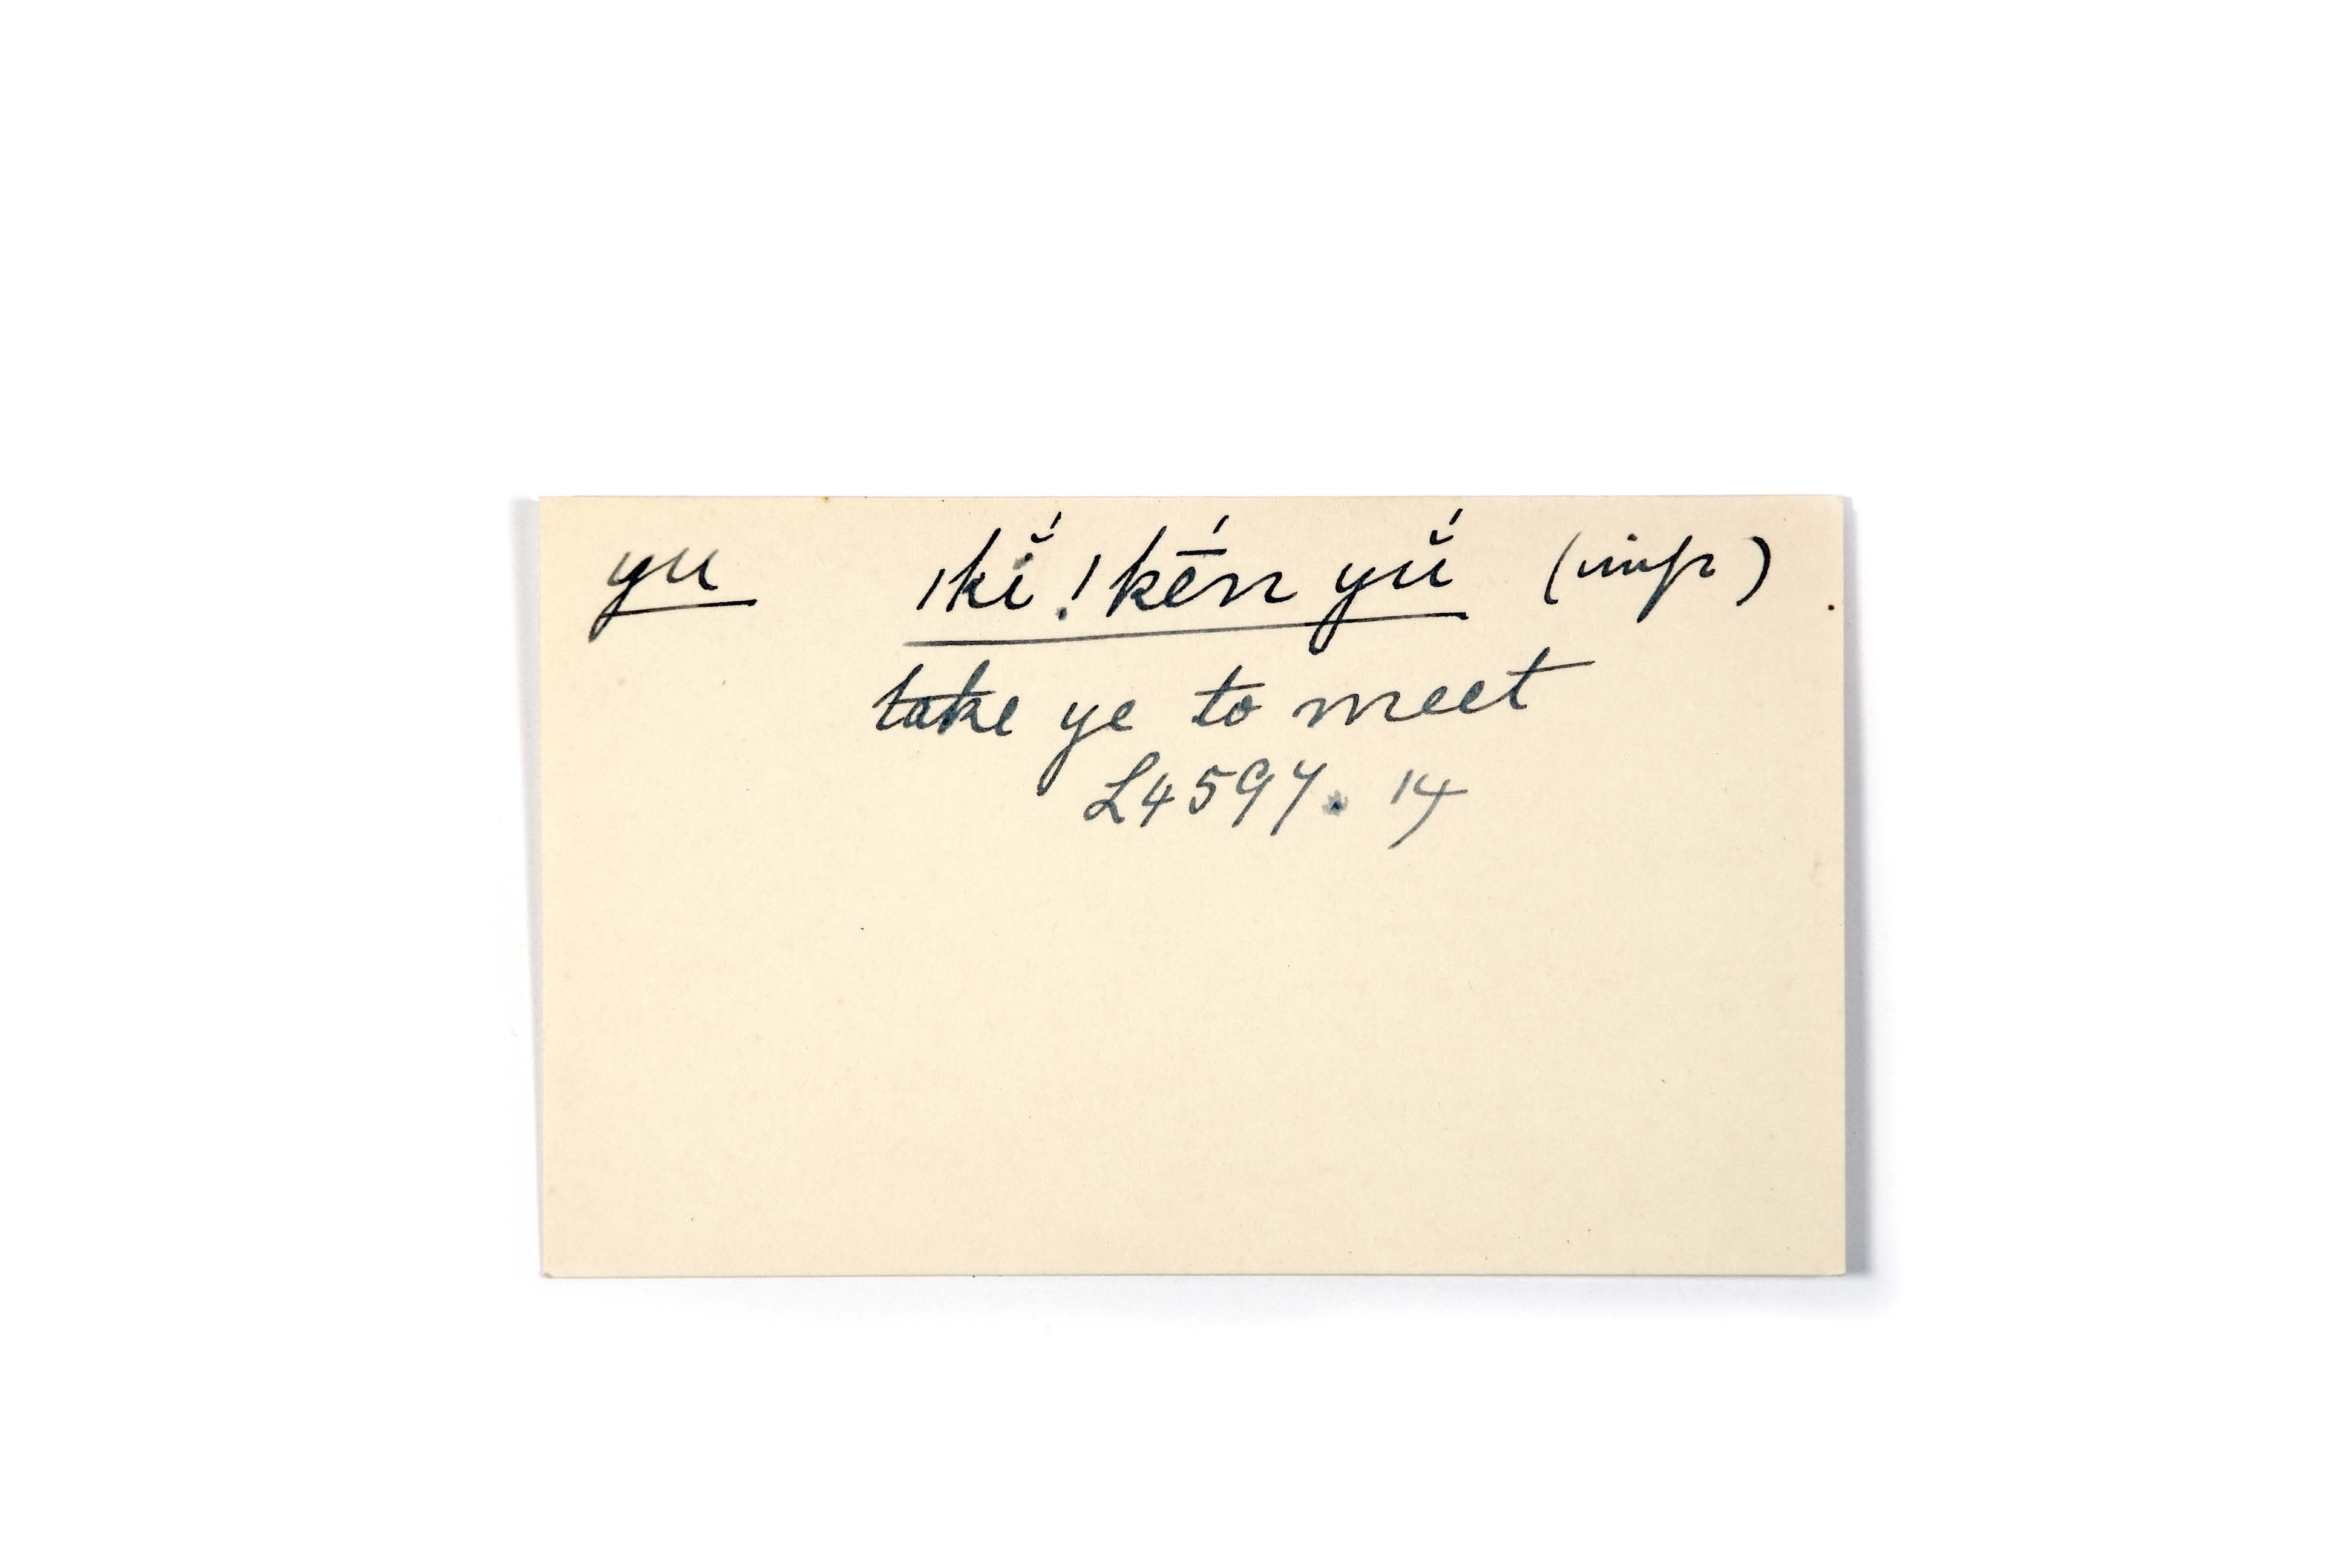 yu ǀkĭ́ ! kḗn yŭ́ (imp).
take ye to meet
L4597. 14